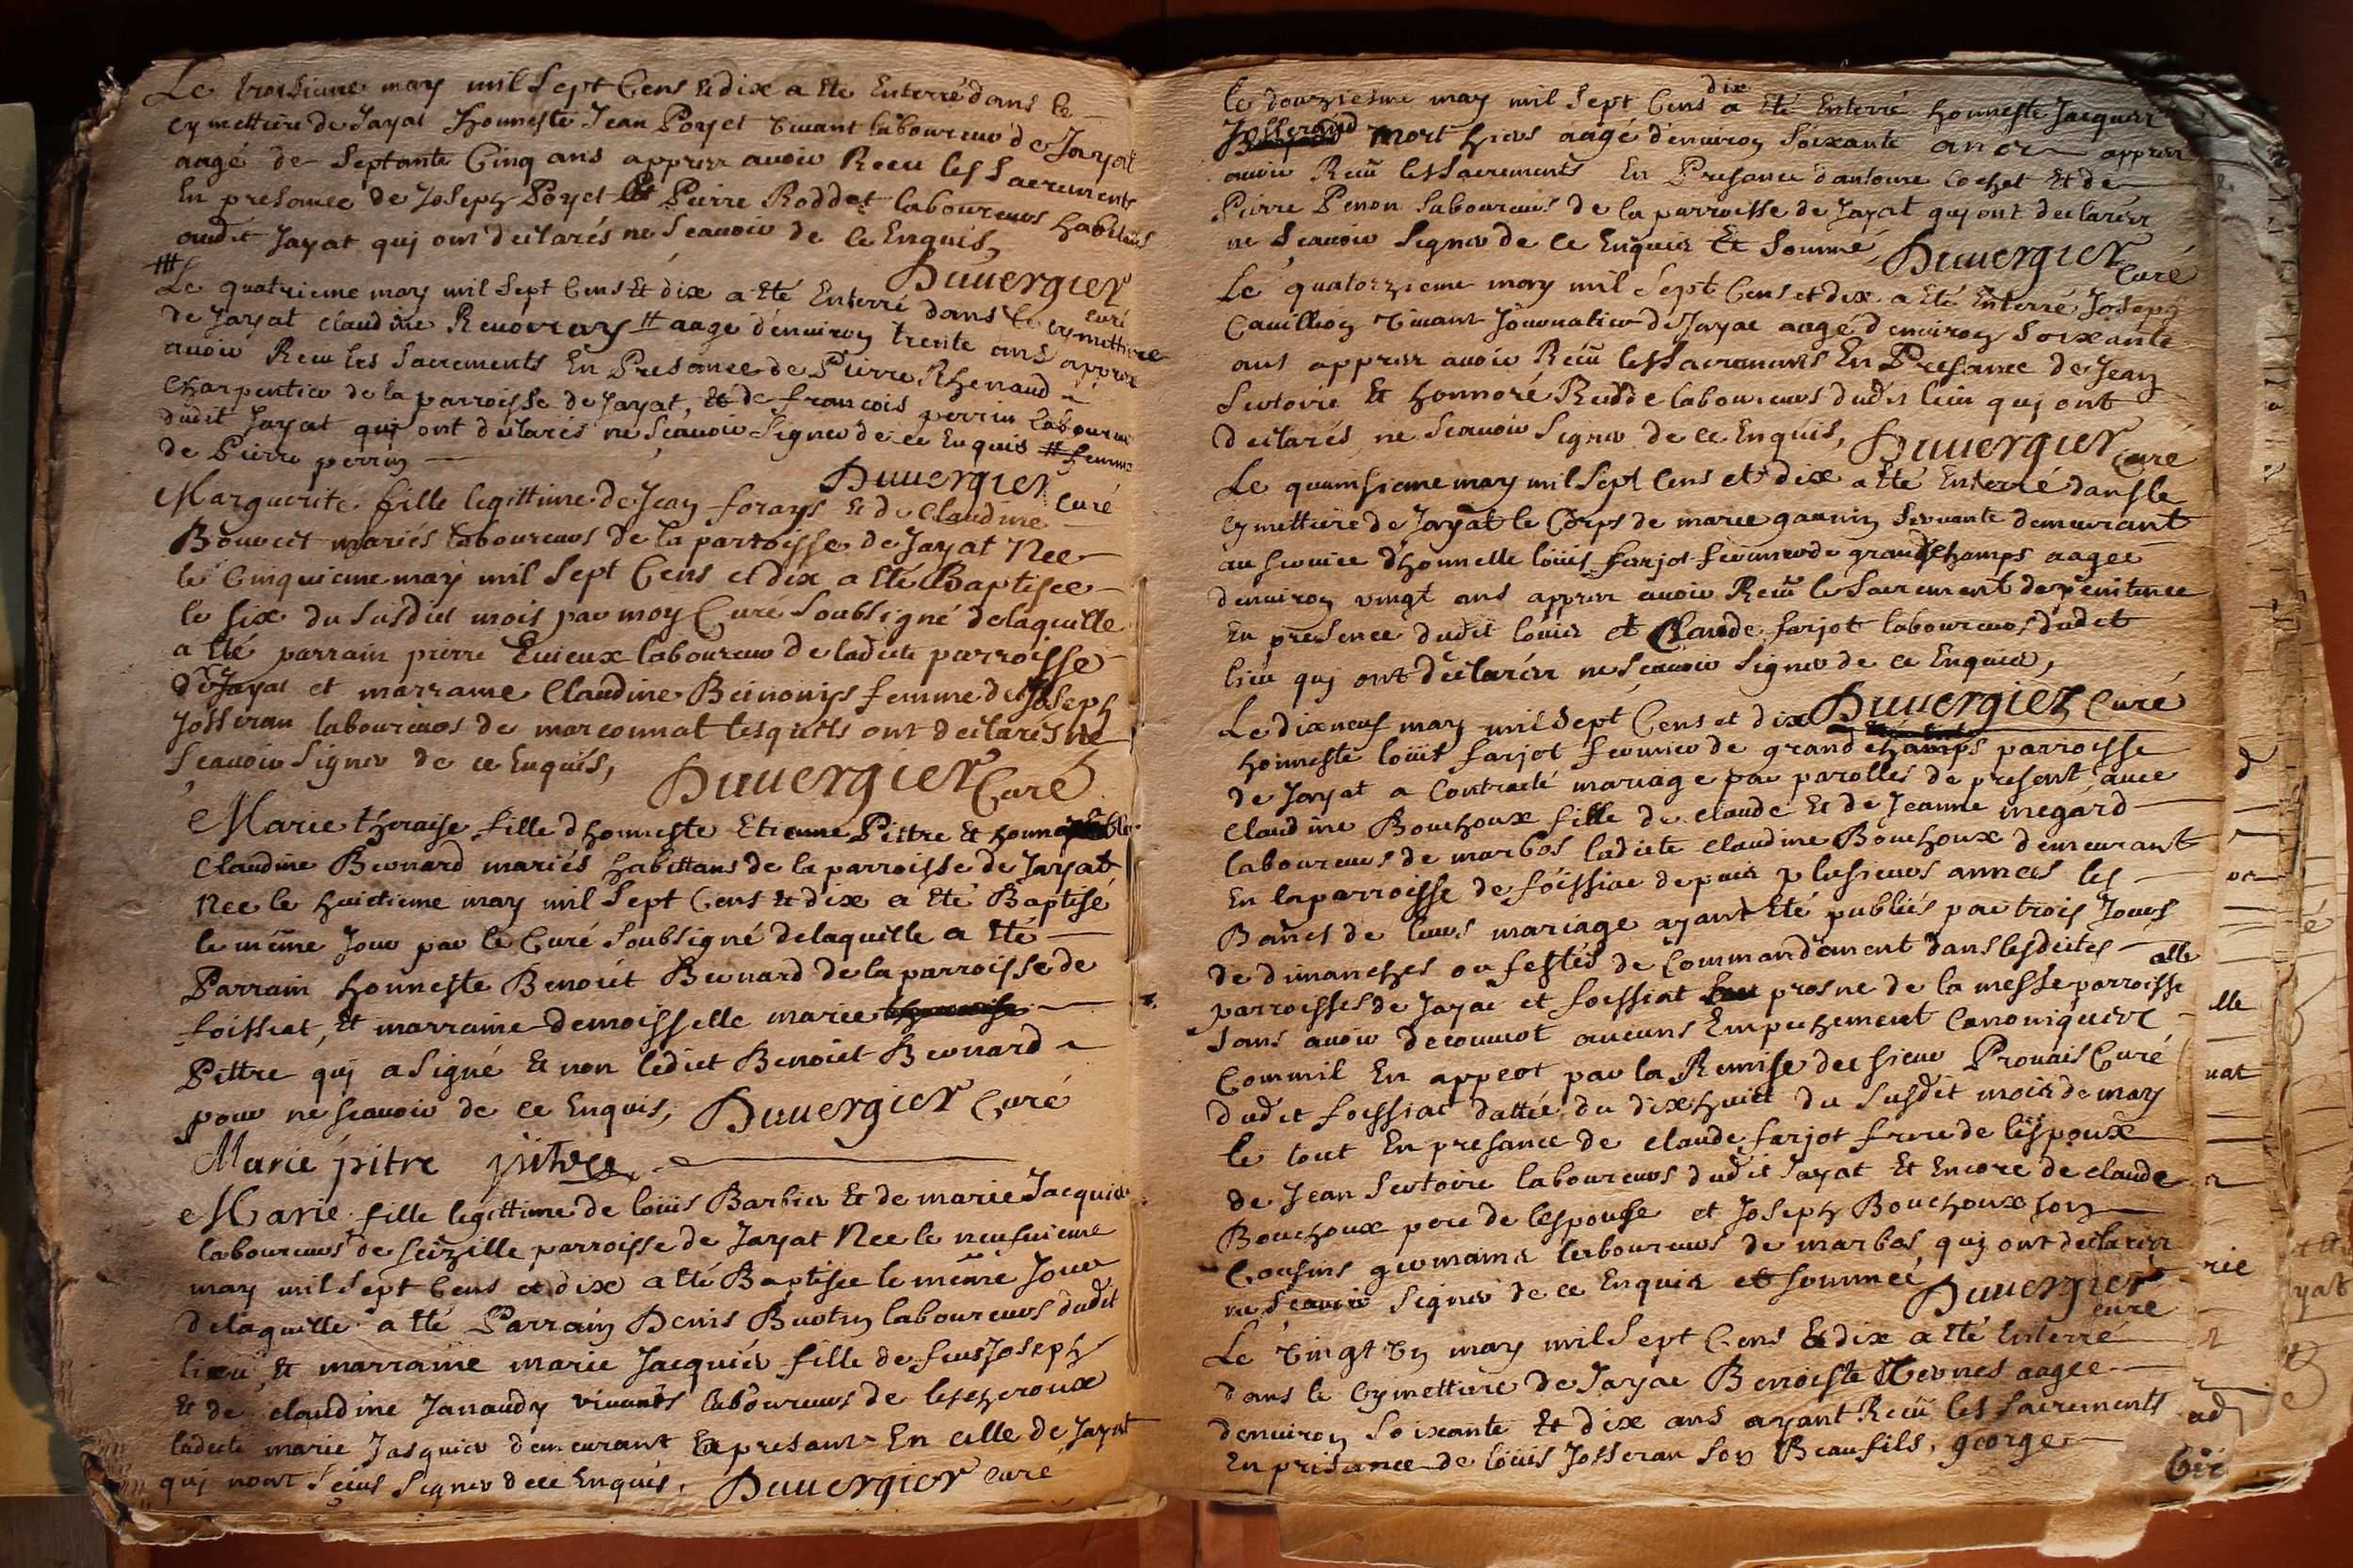 Le troisieme may mil Sept Cens et dix a ete Enterré dans le
cymettiere de Jayat honneste Jean Poyet vivant laboureur de Jayat
aagé de Septante Cinq ans apprez avoir Receu les Sacrements
En presance de Joseph Poyet Pierre Roddet laboureurs habitans
audit Jayat qui ont declarés ne Scavoir de ce Enquis,
Duvergier
curé
Le quatrieme may mil Sept Cens Et dix a eté Enterré dans le cymettiere
de Jayat claudine # aagé d'environ trente ans apprez
avoir Receu les Sacrements En Presance de Pierre Rhenaud
charpentier de la parroisse de Jayat, et de francois perrin laboureur
dudit Jayat qui ont declarés ne Scavoir Signer de ce Enquis # femme
de Pierre perrin
Duvergier curé
Marguerite fille legittime de Jean forays et de Claudine
Bouvet mariés laboureurs de la parroisse de Jayat Nee
le Cinquieme may mil Sept Cens et dix a eté Baptisee
le six du susdict mois par moy Curé Soubsigné de laquelle
a eté parrain pierre laboureur de ladicte parroisse
de Jayat et marraine Claudine femme de Joseph
Josseran laboureurs de marconnat lesquels ont declarés ne
Scavoir Signer de ce Enquis, Duvergier Curé
Marie theraise fille dhonneste Etienne Pittre et
Claudine Bernard mariés habittans de la parroisse de Jayat
Nee le huictieme may mil Sept Cens et dix a eté Baptisé
le même Jour par le Curé Soubsigné de laquelle a eté
Parrain honneste Benoit Bernard de la parroisse de
foissiat, et marraine demoisselle marie
Pittre qui a signé et non ledict Benoict Bernard
pour ne scavoir de ce Enquis, Duvergier Curé
Marie pitre
Marie fille legittime de louis Barbier et de marie Jacquier
laboureurs de Seizille parroisse de Jayat Nee le neufvieme
may mil Sept Cens et dix a eté Baptisee le même Jour
de laquelle a eté Parrain Denis laboureurs dudit
lieu, et marraine marie Jacquier fille de feus Joseph
Et de claudine Janaudy vivants laboureurs de lescheroux
ladicte marie Jasquier demeurant a presant En celle de Jayat
qui nont Sceus Signer de ce Enquis. Duvergier curé
le douziesme may mil Sept Cens dix a Eté Enterré honneste Jacques
Josserand mort hiers aagé d'environ Soixante ans apprez
avoir Receu les Sacrements En Presance dantoine cochet Et de
Pierre Penon laboureurs de la parroisse de Jayat qui ont declarez
ne Scavoir Signer de ce Enquis Et Sommé, Duvergier
Curé
Le quatorzieme may mil Sept Cens et dix a Eté Enterré Joseph
Cavillion vivant Journalier de Jayat aagé denviron Soixante
ans apprez avoir Receu les Sacrements En Presance de Jean
Sertoire Et honnoré Rudde laboureurs dudit lieu qui ont
declarés ne Scavoir Signer de ce Enquis, Duvergier
Curé
Le quinsieme may mil Sept Cens et dix a Eté Enterré dans le
cymettiere de Jayat le Corps de marie servante demeurant
au service dhonneste louis farjot fermier de grandchamps aagee
denviron vingt ans apprez avoir Receu le Sacrement de penitence
En presence dudit louis et Claude farjot laboureurs dudit
lieu qui ont declarez ne Scavoir Signer de ce Enquis,
Duvergier Curé
Le dixneuf may mil Sept Cens et dix
honneste louis farjot fermier de grandchamps parroisse
de Jayat a Contracté mariage par parolles de present avec
Claudine Bouchoux fille de claude Et de Jeanne
laboureurs de marbos ladicte claudine Bouchoux demeurant
En la parroisse de foissiat depuis plusieurs annees les
Bancs de leurs mariage ayant Eté publiés par trois Jours
de dimanches ou festes de Commandement dans lesdictes
parroisses de Jayat et foissiat prosne de la messe parroisse
alle
sans avoir decouvert aucuns Empechement Canoniques
Comm'il En appert par la Remise du sieur Prouais Curé
dudit foissiat dattée du dixhuict du Susdit mois de may
le tout En presance de claude farjot frere de l'espoux
de Jean Sertoire laboureurs dudit Jayat Et Encore de claude
Bouchoux pere de lespouse et Joseph Bouchoux son
Cousins germains laboureurs de marbos qui ont declarez
ne Scavoir Signer de ce Enquis et sommée Duvergier
curé
Le Vingt Un may mil Sept Cens Et dix a Eté Enterré
dans le Cymettiere de Jayat Benoiste aagee
denviron Soixante Et dix ans ayant Receu les Sacrements
En presance de louis Josseran son Beaufils, george